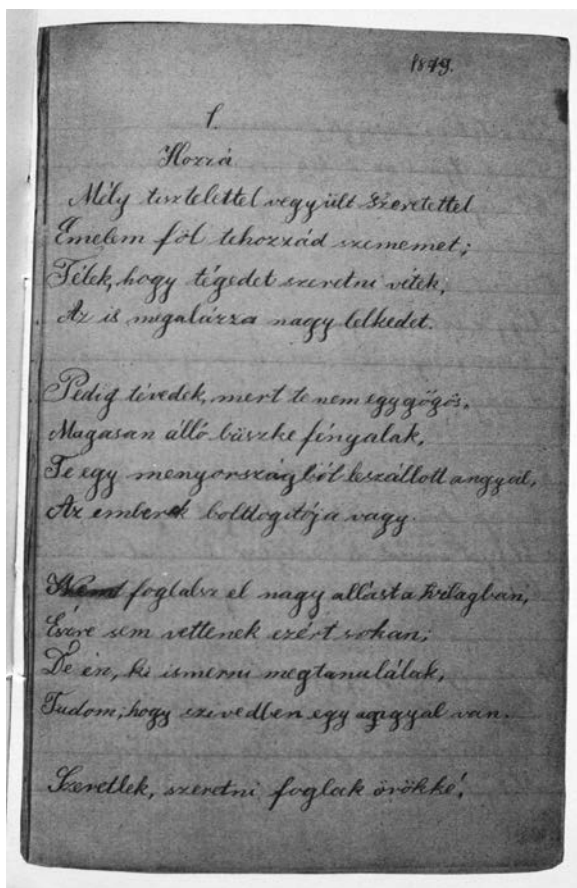 1899.
1.
Hozzá
Mély tisztelettel vegyült szeretettel
Emelem föl tehozzád szememet;
Félek, hogy tégedet szeretni vétek,
Az is megalázza nagy lelkedet.
Pedig tévedek, mert te nem egy gőgös,
Magasan álló büszke fényalak,
Te egy menyországból leszállott angyal,
Az emberek boldogitója vagy.
Nem foglalsz el nagy állást a világban,
Észre sem vettenek ezért sokan;
De én, ki ismerni megtanulálak,
Tudom, hogy szivedben egy angyal van.
Szeretlek, szeretni foglak örökké,